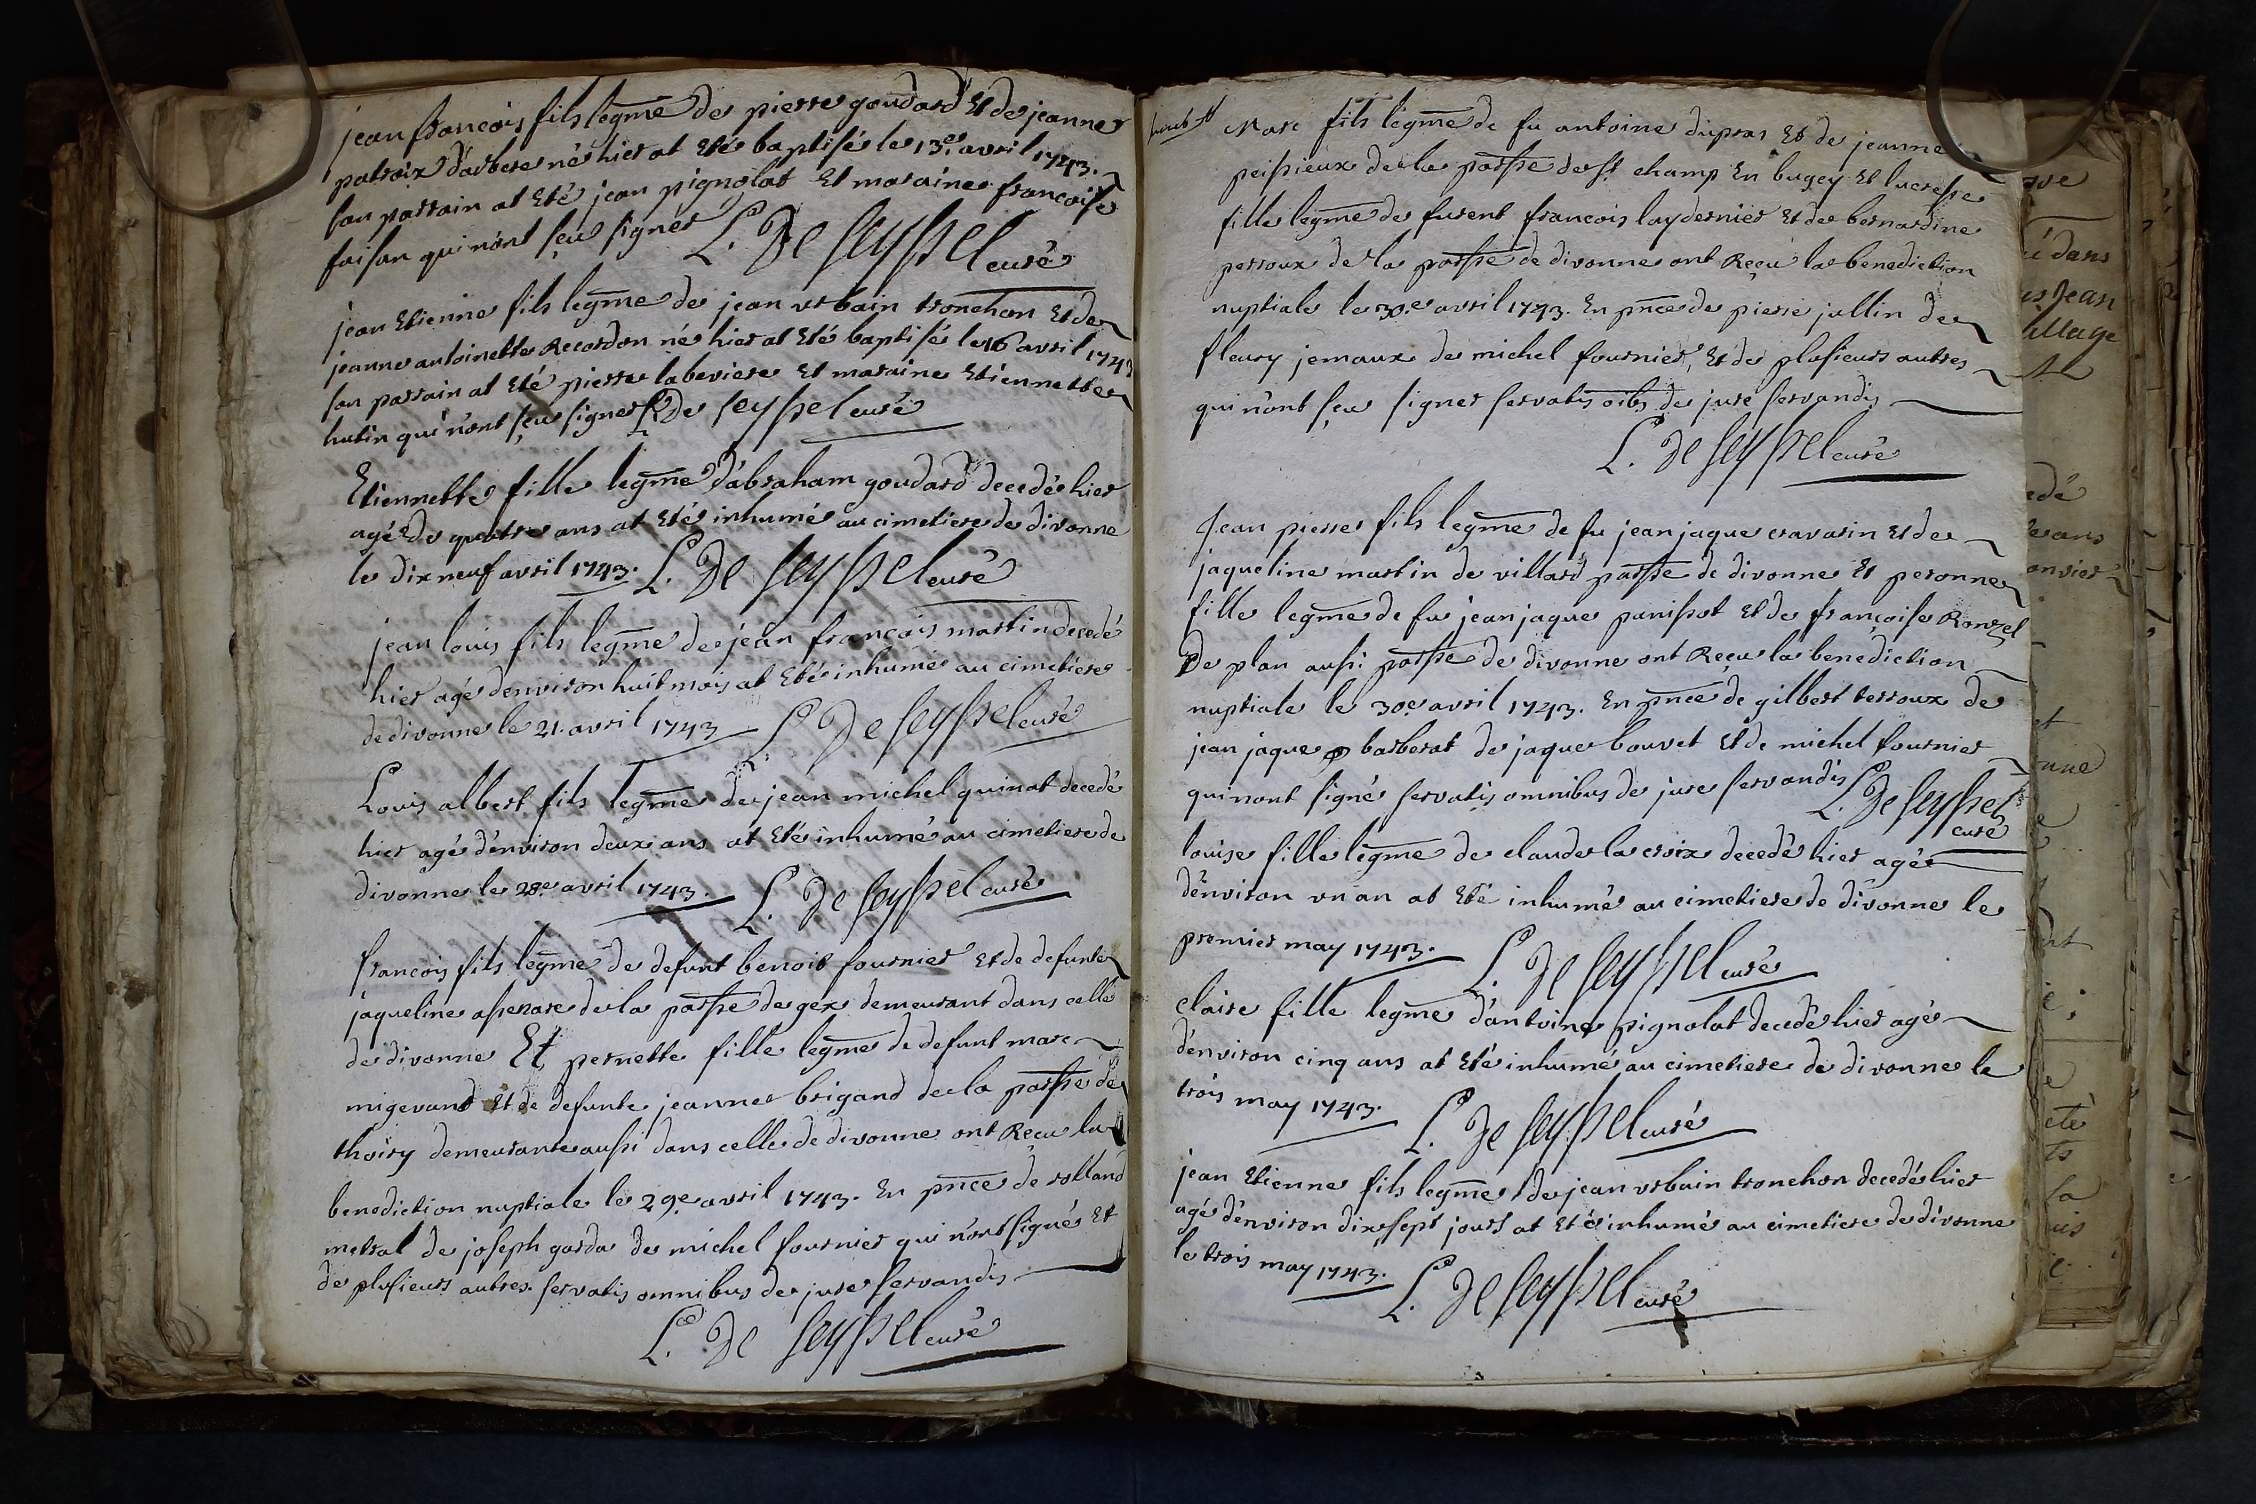 jean francois fils legme de pierre goudard Et de jeanne
patroix d'arbere né hier at Eté baptisé le 13e avril 1743.
son parrain at Eté jean pignolat Et maraine francoise
faisan qui n'ont sçeu signer L. De Seyssel curé
jean Etienne fils legme de jean urbain tronchon Et de
jeanne antoinette Recordon né hier at Eté baptisé le 16 avril 1743
son parrain at Eté pierre labeviere Et maraine Etiennette
hutin qui n'ont sçeu signer L. De Seyssel curé
Etiennette fille legme d'abraham goudard decedé hier
agé de quatre ans at Eté inhumé au cimetiere de divonne
le dix neuf avril 1743. L. De Seyssel curé
jean louis fils legme de jean francois martin decedé
hier agé d'environ huit mois at Eté inhumé au cimetiere
de divonne le 21. avril 1743 L. De Seyssel curé
Louis albert fils legme de jean michel quinat decedé
hier agé d'environ deux ans at Eté inhumé au cimetiere de
divonne le 28e avril 1743. L. De Seyssel curé
francois fils legme de defunt benoit fournier Et de defunte
jaqueline de la parsse de gex demeurant dans celle
de divonne Et pernette fille legme de defunt marc
migevand Et de defunte jeanne brigand de la parsse de
thoiry demeurante aussi dans celle de divonne ont Reçu la
benediction nuptiale le 29e avril 1743. En pnce de rolland
metral de joseph garda de michel fournier qui n'ont signés Et
de plusieurs autres. servatis omnibus de jure servandis
L. De Seyssel curé
Marc fils legme de fu antoine dupras Et de jeanne
peissieux de la parsse de st champ En bugey Et lucresse
fille legme de furent francois laydernier Et de bernardine
perroux de la parsse de divonne ont Reçu la benediction
nuptiale le 30e avril 1743. En pnce de pierre jullin de
fleury jemaux de michel fournier, Et de plusieurs autres
qui n'ont sçeu signer servatis oibs de jure servandis
L. De Seyssel curé
Jean pierre fils legme de fu jean jaque cravasin Et de
jaqueline martin de villard parsse de divonne Et peronne
fille legme de fu jean jaque panissot Et de françoise Ronzel
De plan aussi parsse de divonne ont Reçu la benediction
nuptiale le 30e avril 1743. En pnce de gilbert terroux de
jean jaque barberat de jaque bouvet Et de michel fournier
qui n'ont signé servatis omnibus de jure servandis L. De Seyssel
curé
louise fille legme de claude lacroix decedé hier agé
d'environ un an at Eté inhumé au cimetiere de divonne le
premier may 1743. L. De Seyssel curé
claire fille legme d'antoine pignolat decedé hier agé
d'environ cinq ans at Eté inhumé au cimetiere de divonne le
trois may 1743. L. De Seyssel curé
jean Etienne fils legme de jean urbain tronchon decedé hier
agé d'environ dix sept jours at Eté inhumé au cimetiere de divonne
le trois may 1743. L. De Seyssel curé